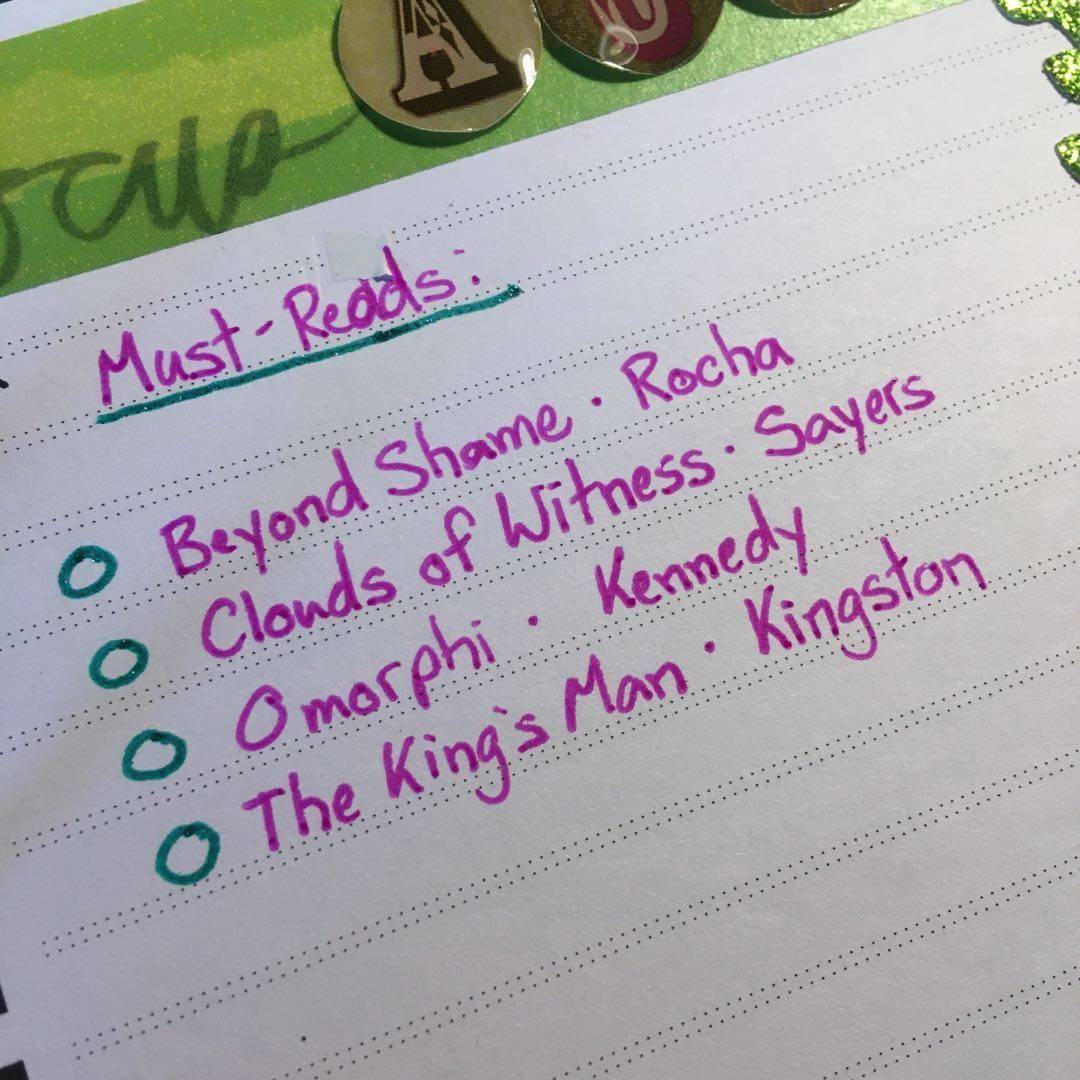 A
Must-Reads:
Beyond Shame · Rocha
Clouds of Witness · Sayers
Omorphi · Kennedy
The King's Man · Kingston